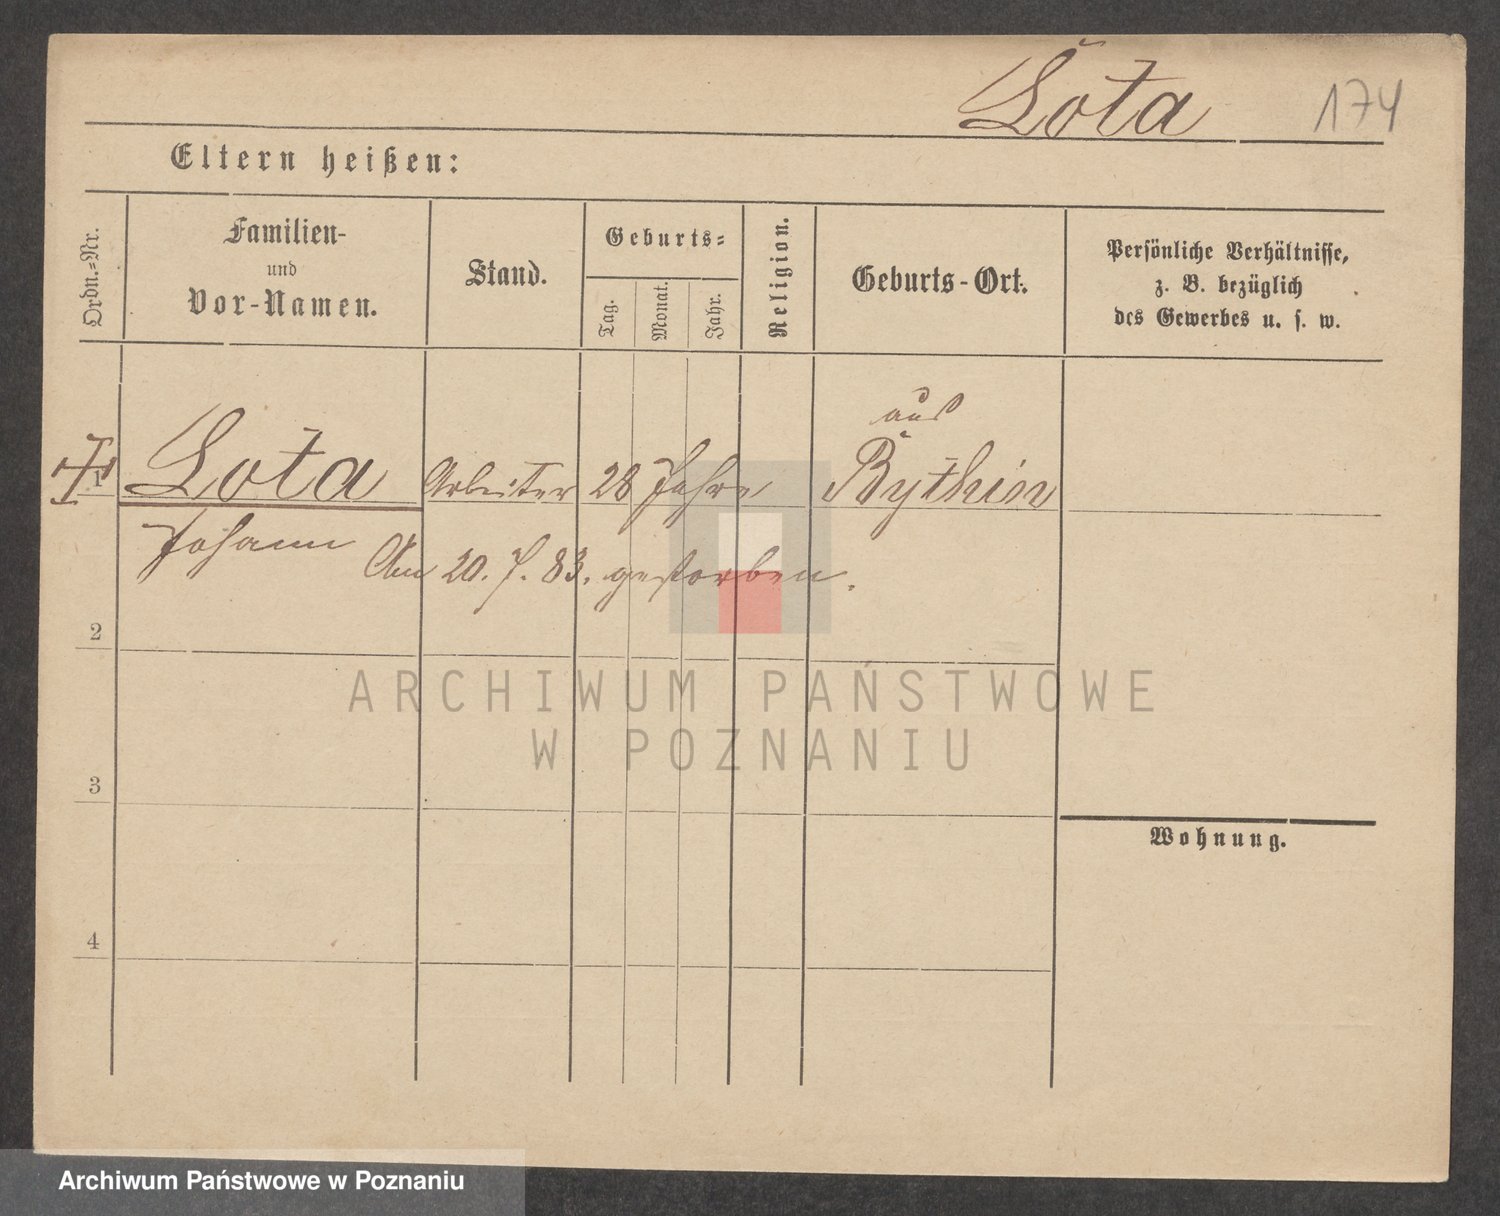 Lota 174
Eltern heißen:
Ordn.=Nr.
Familien-
und
Vor-Namen.
Stand.
Geburts=
Tag.
Monat.
Jahr.
Religion.
Geburts-Ort.
Persönliche Verhältnisse,
z. B. bezüglich
des Gewerbes u. s. w.
aus
1 Lota Arbeiter 28 Jahre Bythin
Johann Am 20. 7. 83. gestorben.
2
3
Wohnung.
4
ARCHIWUM PAŃSTWOWE
W POZNANIU
Archiwum Państwowe w Poznaniu